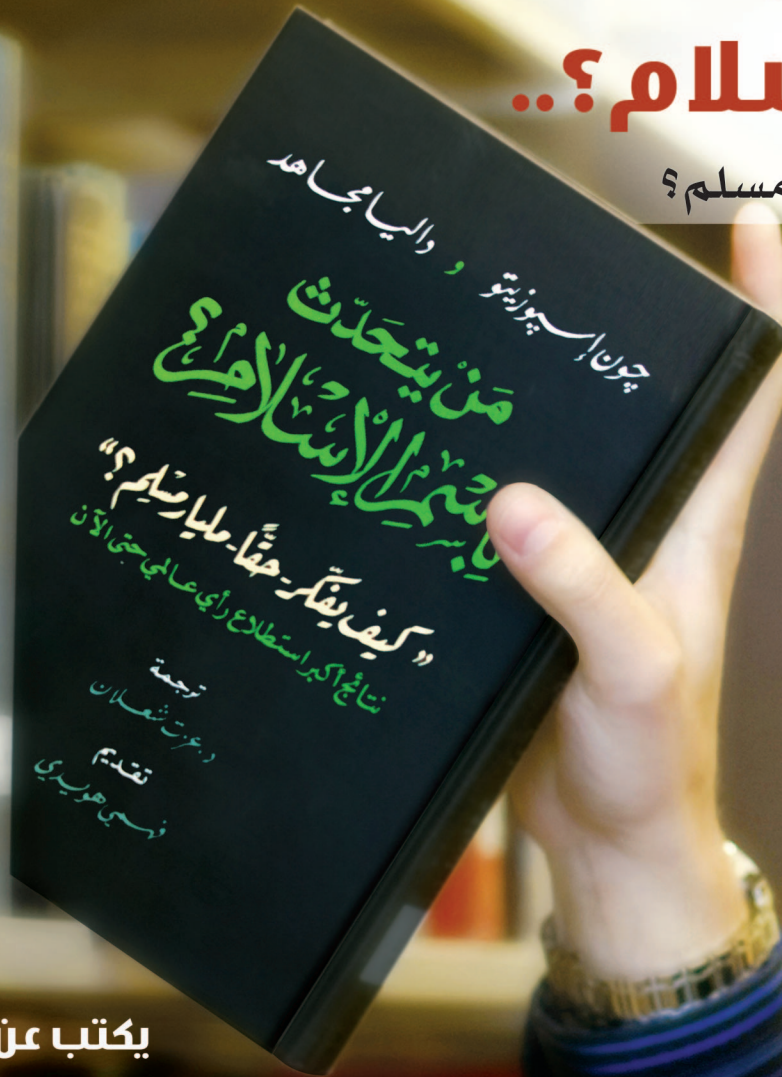 سلام؟..
مسلم؟
چون إسپوزيتو و داليا مجاهد
مَنْ يتحَدّث
بِاسْمِ الإسْلامِ؟
"كيف يفكّر - حقًّا - مليار مسْلِم؟"
نتائج أكبر استطلاع رأي عالمي حتى الآن
ترجمة
د. عزت شعلان
تقديم
فهمي هويدي
يكتب عن